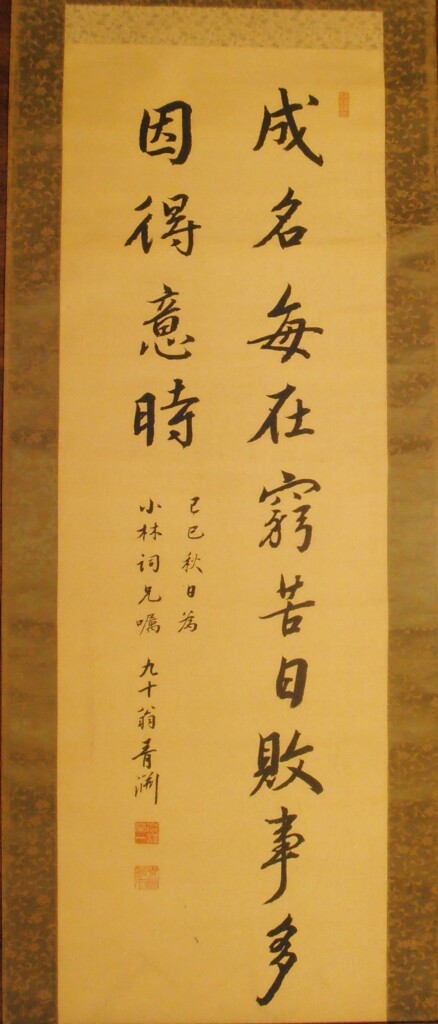 成名每在窮苦日敗事多
因得意時
己巳秋日為
小林詞兄囑 九十翁青淵